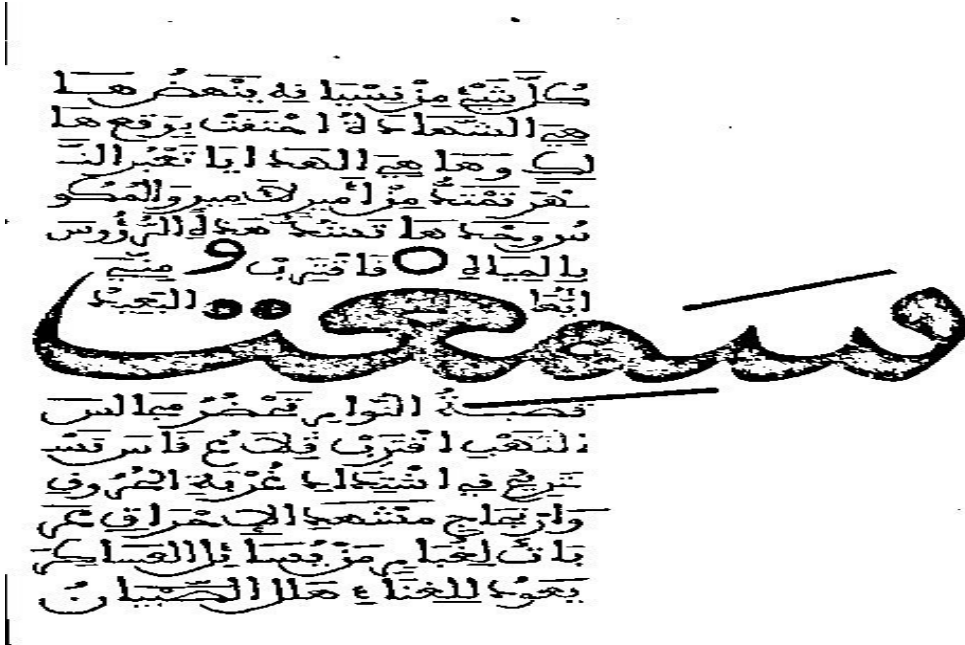 كُلُّ شَيْءٍ مِنْ نِسْيَانِهِ يَنْهَضُ هَا
هِيَ الشَّهَادَةُ اخْتَفَتْ يَرْقَعُهَا
لِكَ وَهَا هِيَ الْهَدَايَا تَعْبُرُ النَّـ
ـهْرَ تَمْتَدُّ مِنْ أَمِيرٍ لِأَمِيرٍ وَالْمُكُو
سُ وَحْدَهَا تَحْتَدُّ هَذِي الرُّؤُوسُ
بِاللَّيَالِي فَاقْتَرِبْ مِنِّي
أَيُّهَا الْبَعِيدْ
سَمِعْتُ
قَصَبَةُ النُّوَّامِ تَحْضُرُ مَجَالِسَ
اللَّهَبِ اقْتَرَبَ قِلَاعُ فَاسَ تَسْـ
ـتَرِيحُ فِي اشْتِدَادِ غُرْبَةِ الْحُرُوفِ
وَارْتِجَاجِ مَشْهَدِ الْإِحْرَاقِ عَرَ
بَاتٌ لِخُيَّامٍ مِنْ بُصَاقِ الْعَسَاكِرِ
يَعُودُ لِلْغِنَاءِ هَلْ الصِّبْيَانُ